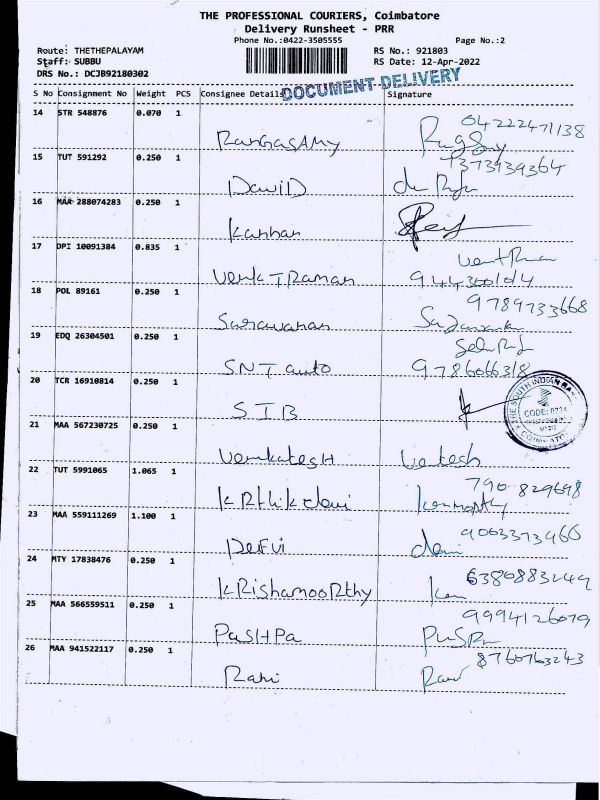 THE PROFESSIONAL COURIERS, Coimbatore
Delivery Runsheet - PRR
Phone No.:0422-3505555
Page No.:2
Route: THETHEPALAYAM
RS No.: 921803
Staff: SUBBU
RS Date: 12-Apr-2022
DRS No.: DCJB92180302
DOCUMENT DELIVERY
S No Consignment No Weight PCS Consignee Details Signature
14 STR 548876 0.070 1
RanGasAmy 04222471138
15 TUT 591292 0.250 1
DawiD 7373939364
16 MAA 288074283 0.250 1
Kannan
17 DPI 10091384 0.835 1
VenkTRaman
18 POL 89161 0.250 1
Sarawanan 9789733668
19 EDQ 26304501 0.250 1
SNT auto 9786066318
20 TCR 16910814 0.250 1
SIB
THE SOUTH INDIAN BANK
CODE:
COIMBATORE
21 MAA 567230725 0.250 1
VenkatesH
22 TUT 5991065 1.065 1
KRthikdevi 790 829698
23 MAA 559111269 1.100 1
9063373466
24 MTY 17838476 0.250 1
KRishamooRthy 6380883249
25 MAA 566559511 0.250 1
PasHPa 9994126079
26 MAA 941522117 0.250 1
8760763243